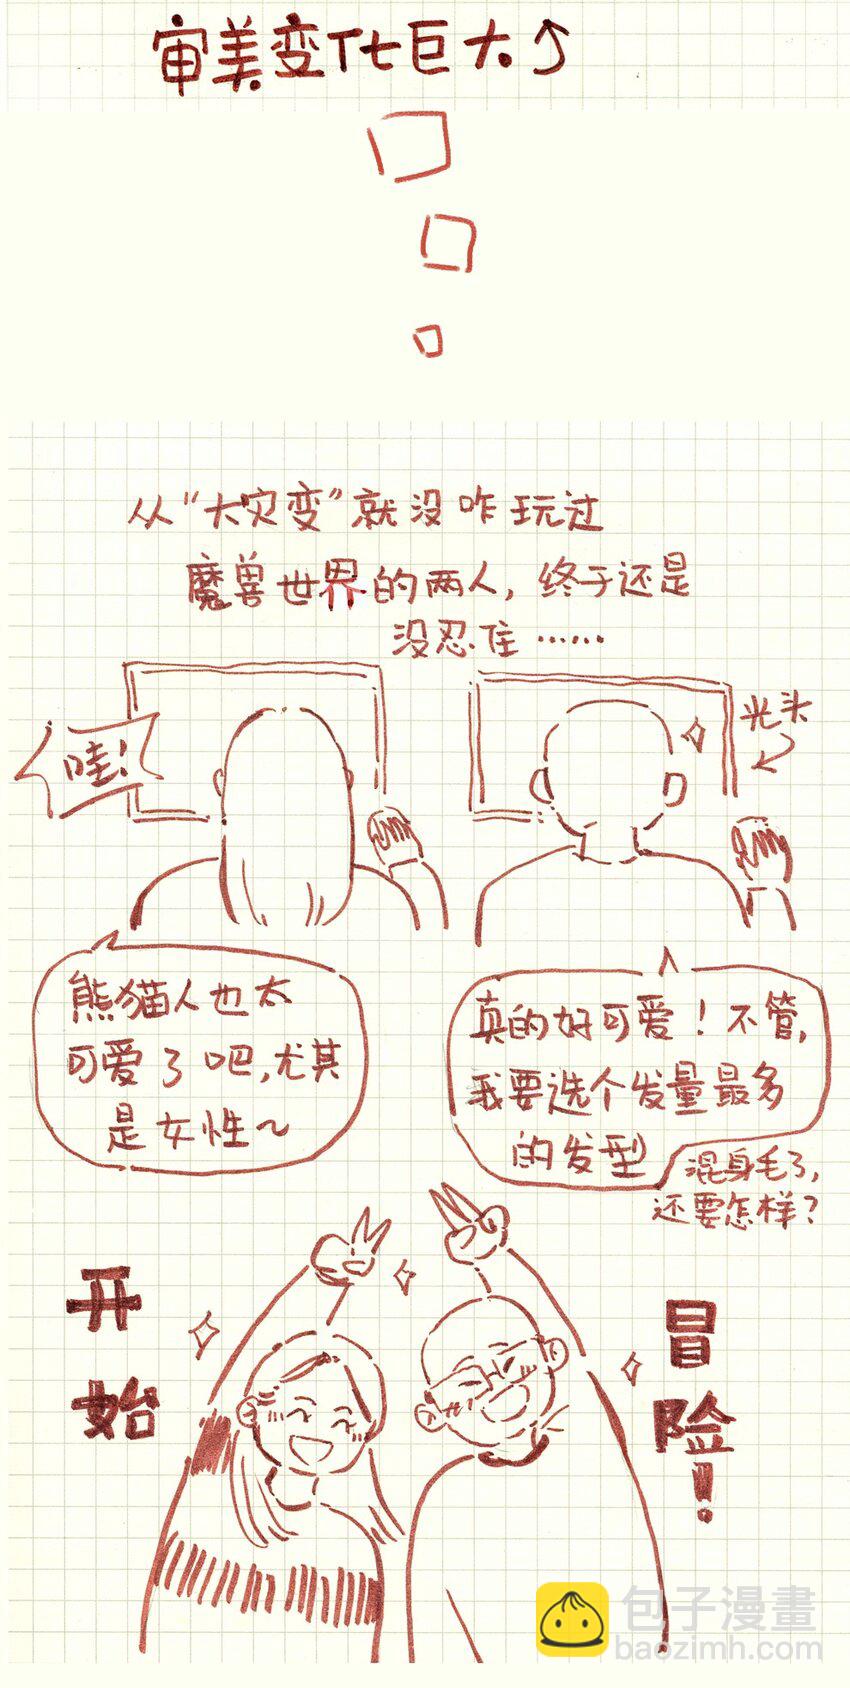 审美变化巨大↑
从“大灾变”就没咋玩过
魔兽世界的两人，终于还是
没忍住……
哇！
光头
熊猫人也太
可爱了吧，尤其
是女性～
真的好可爱！不管，
我要选个发量最多
的发型
混身毛了，
还要怎样？
开始
冒险！
包子漫畫
baozimh.com